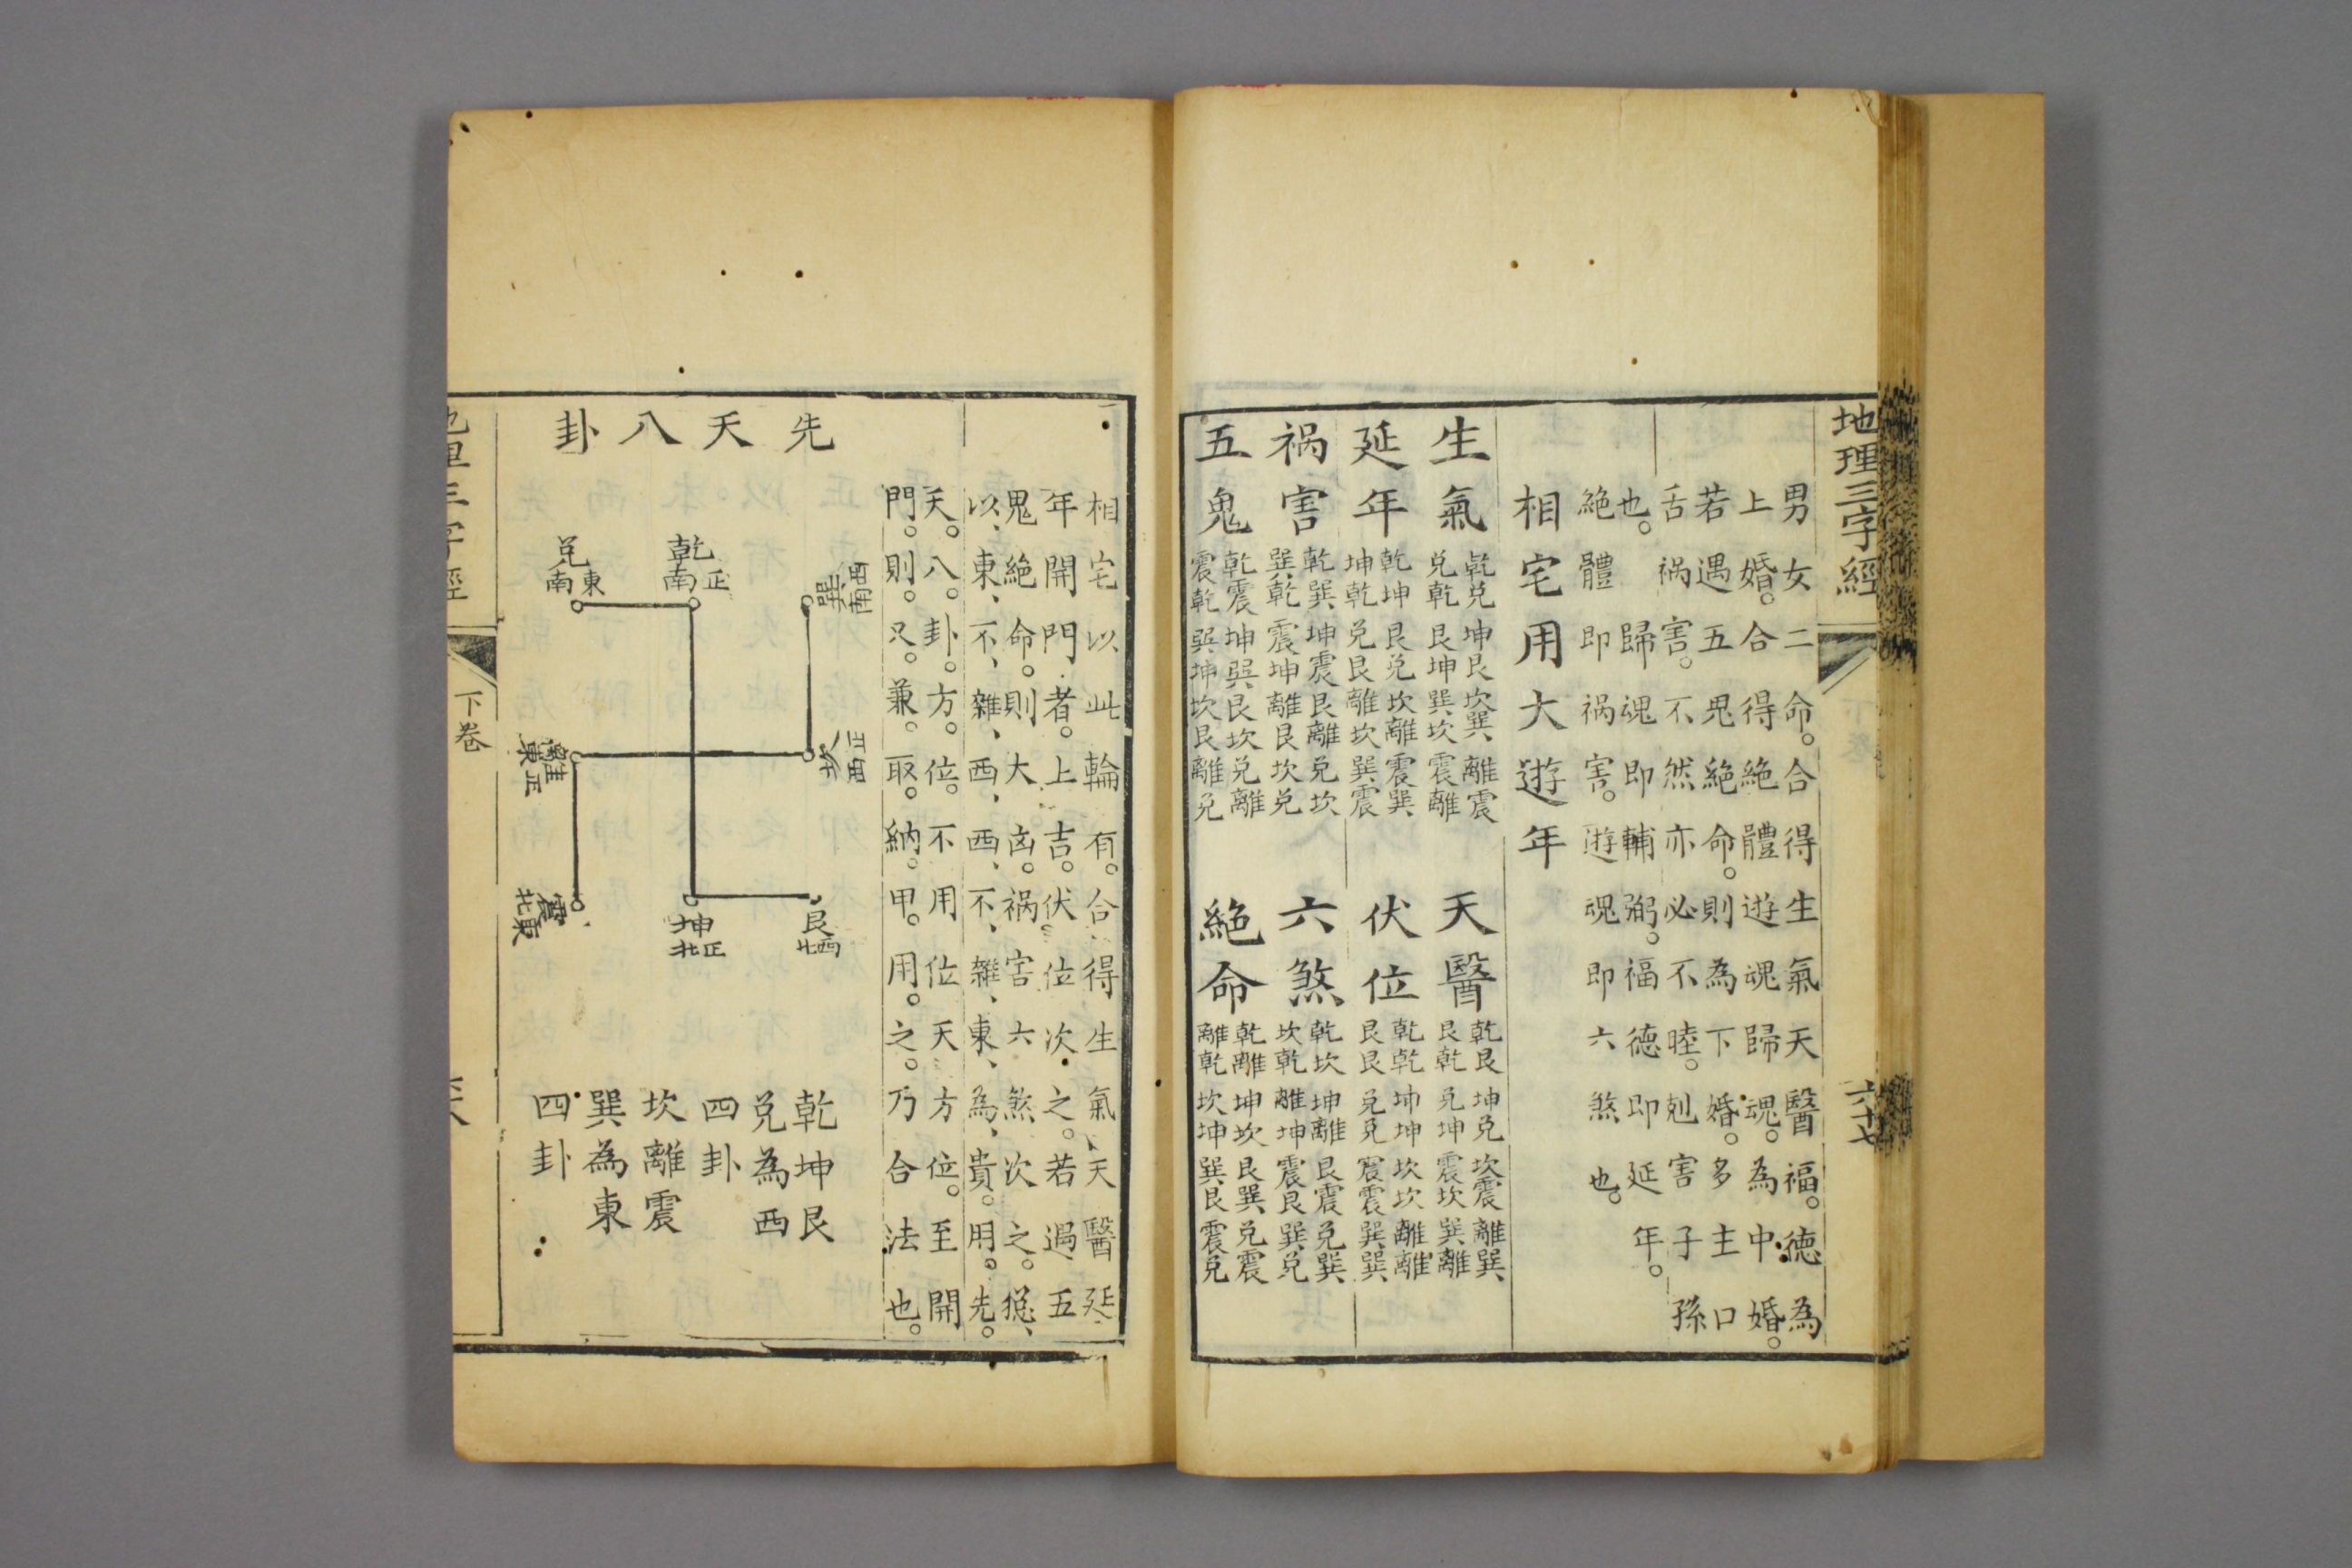 地理三字經
六十七
男女二命。合得生氣天醫福。德為
上婚。合得絶體遊魂歸魂。為中婚。
若遇五鬼絶命。則為下婚。多主口
舌禍害。不然亦必不睦。剋害子孫
也。歸魂即輔弼。福德即延年。
絶體即禍害。遊魂即六煞也。
相宅用大遊年
生氣
乾兌坤艮坎巽離震
兌乾艮坤巽坎震離
天醫
乾艮坤兌坎震離巽
艮乾兌坤震坎巽離
延年
乾坤艮兌坎離震巽
坤乾兌艮離坎巽震
伏位
乾乾坤坤坎坎離離
艮艮兌兌震震巽巽
禍害
乾巽坤震艮離兌坎
巽乾震坤離艮坎兌
六煞
乾坎坤離艮震兌巽
坎乾離坤震艮巽兌
五鬼
乾震坤巽艮坎兌離
震乾巽坤坎艮離兌
絶命
乾離坤坎艮巽兌震
離乾坎坤巽艮震兌
相宅以此輪有。合得生氣天醫延
年開門者。上吉。伏位次之。若遇五
鬼絶命。則大凶。禍害六煞次之。總
以東不雜西西不雜東為貴。用。先。
天。八。卦。方。位。不用位天方位。至開
門。則。只。兼。取。納。甲。用。之。乃合法也。
先天八卦
巽西南
乾正南
兌東南
坎正西
離正東
艮西北
坤正北
震東北
乾坤艮
兌為西
四卦
坎離震
巽為東
四卦
下卷